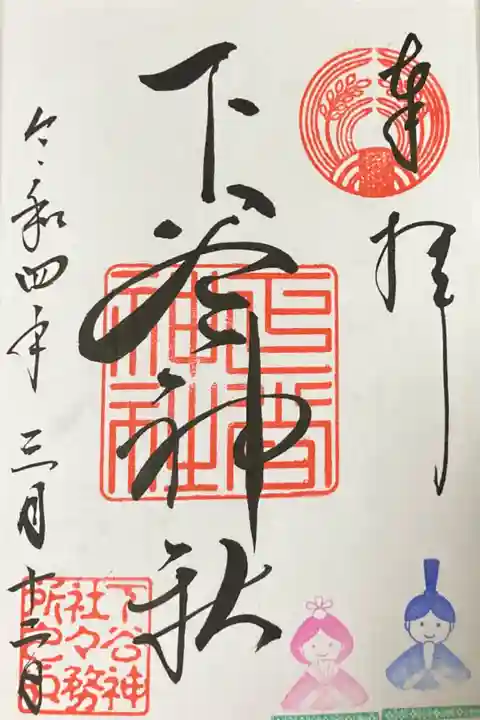 奉拝
下谷神社
下谷神社
令和四年三月十二日
下谷神社々務所之印